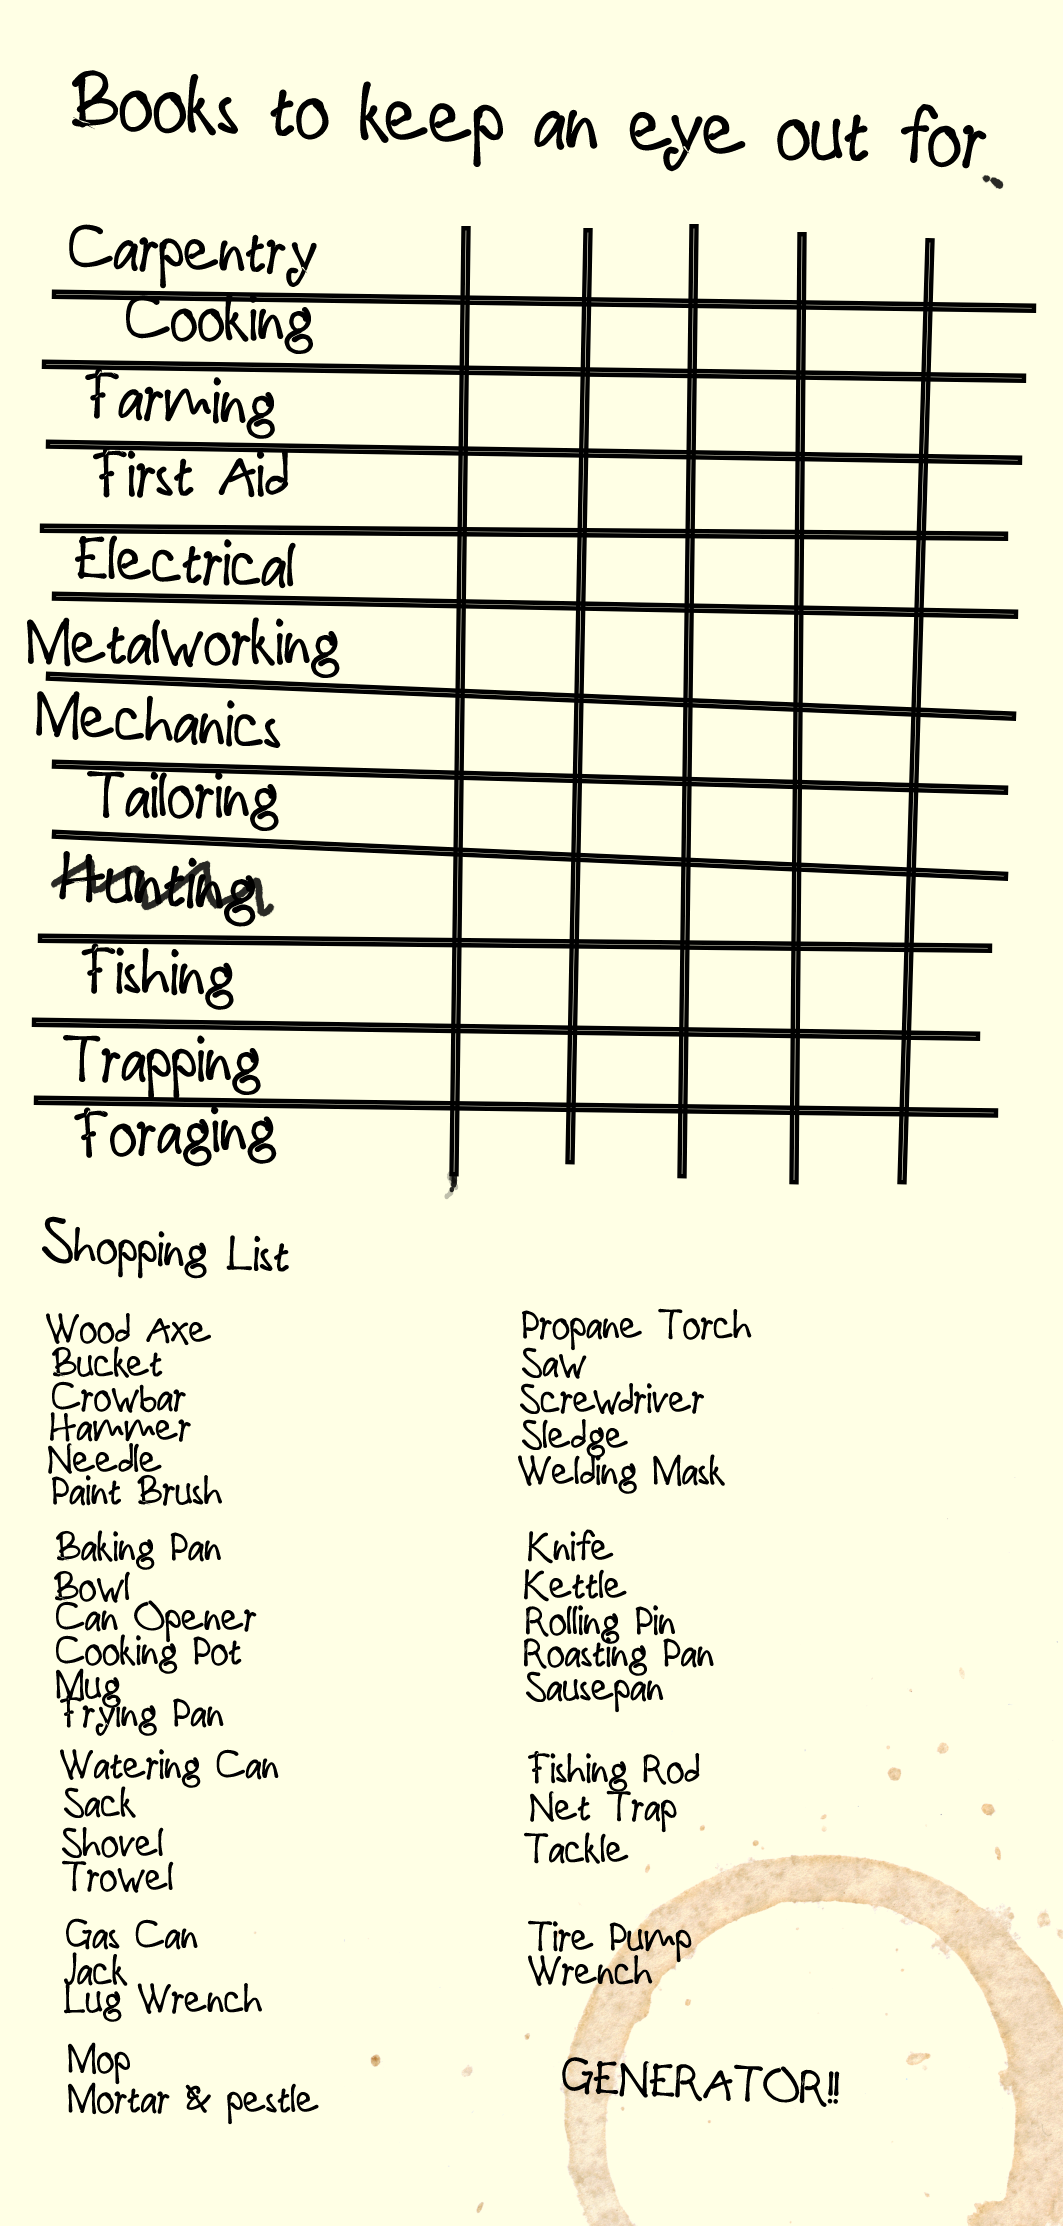 Books to keep an eye out for
Carpentry
Cooking
Farming
First Aid
Electrical
Metalworking
Mechanics
Tailoring
Hunting
Fishing
Trapping
Foraging
Shopping List
Wood Axe
Bucket
Crowbar
Hammer
Needle
Paint Brush
Baking Pan
Bowl
Can Opener
Cooking Pot
Mug
Frying Pan
Watering Can
Sack
Shovel
Trowel
Gas Can
Jack
Lug Wrench
Mop
Mortar & pestle
Propane Torch
Saw
Screwdriver
Sledge
Welding Mask
Knife
Kettle
Rolling Pin
Roasting Pan
Sausepan
Fishing Rod
Net Trap
Tackle
Tire Pump
Wrench
GENERATOR!!